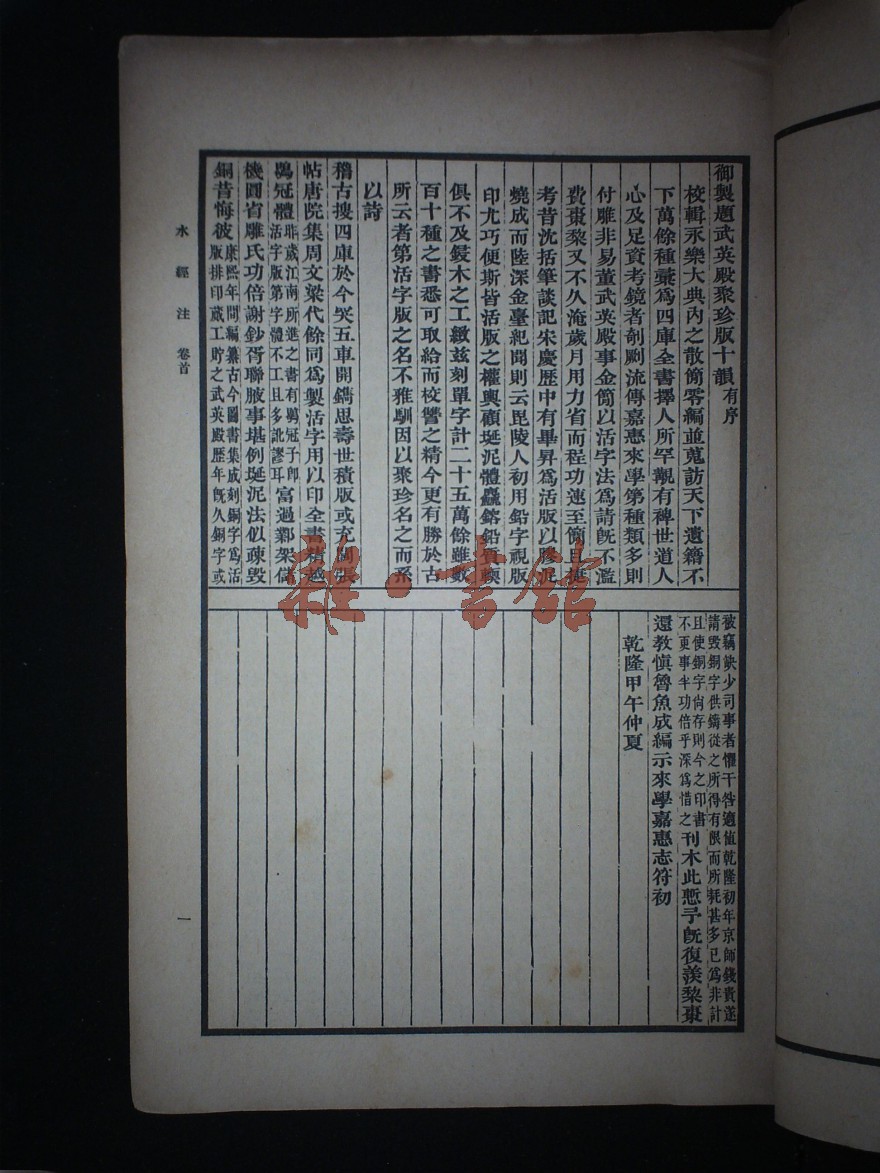 御製題武英殿聚珍版十韻有序
校輯永樂大典內之散簡零編並蒐訪天下遺籍不
下萬餘種彙爲四庫全書擇人所罕覯有裨世道人
心及足資考鏡者剞劂流傳嘉惠來學第種類多則
付雕非易董武英殿事金簡以活字法爲請旣不濫
費棗黎又不久淹歲月用力省而程功速至簡且捷
考昔沈括筆談記宋慶歷中有畢昇爲活版以膠泥
燒成而陸深金臺紀聞則云毘陵人初用鉛字視版
印尤巧便斯皆活版之權輿顧埏泥體麤鎔鉛質輭
俱不及鋟木之工緻茲刻單字計二十五萬餘雖數
百十種之書悉可取給而校讐之精今更有勝於古
所云者第活字版之名不雅馴因以聚珍名之而系
以詩
稽古搜四庫於今突五車開鐫思壽世積版或充閭張
帖唐院集周文梁代餘同爲製活字用以印全書精越
鶡冠體昨歲江南所進之書有鶡冠子卽
活字版第字體不工且多訛謬耳富過鄴架儲
機圓省雕氏功倍謝鈔胥聯腋事堪例埏泥法似疎毀
銅昔悔彼康熙年間編纂古今圖書集成刻銅字爲活
版排印蕆工貯之武英殿歷年旣久銅字或
被竊缺少司事者懼干咎適值乾隆初年京師錢貴遂
請毀銅字供鑄從之所得有限而所耗甚多已爲非計
且使銅字尙存則今之印書
不更事半功倍乎深爲惜之刊木此慙予旣復羨黎棗
還教愼魯魚成編示來學嘉惠志符初
乾隆甲午仲夏
水經注 卷首
一
雜·書館